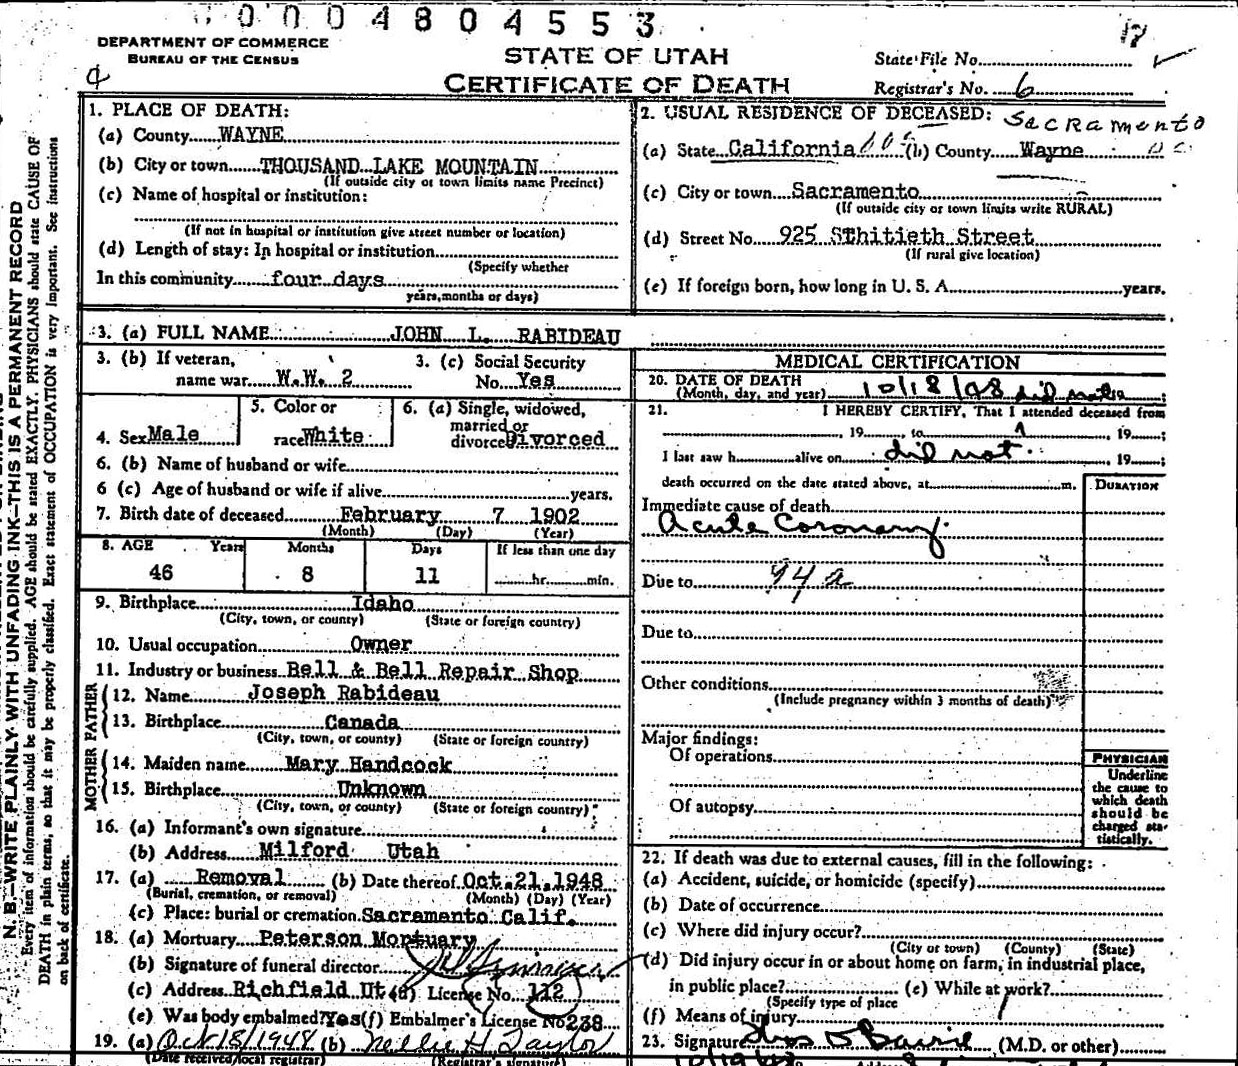 0004804553
DEPARTMENT OF COMMERCE
BUREAU OF THE CENSUS
STATE OF UTAH
CERTIFICATE OF DEATH
State File No.
Registrar's No. 6
1. PLACE OF DEATH:
(a) County WAYNE
(b) City or town THOUSAND LAKE MOUNTAIN
(If outside city or town limits name Precinct)
(c) Name of hospital or institution:
(If not in hospital or institution give street number or location)
(d) Length of stay: In hospital or institution
(Specify whether
In this community four days
years, months or days)
2. USUAL RESIDENCE OF DECEASED: Sacramento
(a) State California (b) County Wayne
(c) City or town Sacramento
(If outside city or town limits write RURAL)
(d) Street No. 925 SThitieth Street
(If rural give location)
(e) If foreign born, how long in U. S. A. years.
3. (a) FULL NAME JOHN L. RABIDEAU
3. (b) If veteran, name war W.W. 2
3. (c) Social Security No. Yes
4. Sex Male
5. Color or race White
6. (a) Single, widowed, married or divorced Divorced
6. (b) Name of husband or wife
6 (c) Age of husband or wife if alive years.
7. Birth date of deceased February 7 1902
(Month) (Day) (Year)
8. AGE Years Months Days If less than one day
46 8 11 hr. min.
9. Birthplace Idaho
(City, town, or county) (State or foreign country)
10. Usual occupation Owner
11. Industry or business Bell & Bell Repair Shop
FATHER
12. Name Joseph Rabideau
13. Birthplace Canada
(City, town, or county) (State or foreign country)
MOTHER
14. Maiden name Mary Handcock
15. Birthplace Unknown
(City, town, or county) (State or foreign country)
16. (a) Informant's own signature
(b) Address Milford Utah
17. (a) Removal (b) Date thereof Oct. 21, 1948
(Burial, cremation, or removal) (Month) (Day) (Year)
(c) Place: burial or cremation Sacramento Calif.
18. (a) Mortuary Peterson Mortuary
(b) Signature of funeral director
(c) Address Richfield Ut (d) License No. 112
(e) Was body embalmed? Yes (f) Embalmer's License No 238
19. (a) Oct 18/1948 (b) Nellie H Taylor
(Date received local registrar) (Registrar's signature)
MEDICAL CERTIFICATION
20. DATE OF DEATH
(Month, day, and year) 10/18/48
21. I HEREBY CERTIFY, That I attended deceased from
, 19 to , 19 ;
I last saw h alive on did not 19 ;
death occurred on the date stated above, at m.
DURATION
Immediate cause of death
Acute Coronary.
Due to 94a
Due to
Other conditions
(Include pregnancy within 3 months of death)
Major findings:
Of operations
Of autopsy
PHYSICIAN
Underline
the cause to
which death
should be
charged sta-
tistically.
22. If death was due to external causes, fill in the following:
(a) Accident, suicide, or homicide (specify)
(b) Date of occurrence
(c) Where did injury occur?
(City or town) (County) (State)
(d) Did injury occur in or about home on farm, in industrial place,
in public place? (e) While at work?
(Specify type of place
(f) Means of injury
23. Signature (M.D. or other)
N. B.—WRITE PLAINLY WITH UNFADING INK—THIS IS A PERMANENT RECORD
Every item of information should be carefully supplied. AGE should be stated EXACTLY. PHYSICIANS should state CAUSE OF
DEATH in plain terms, so that it may be properly classified. Exact statement of OCCUPATION is very important. See instructions
on back of certificate.